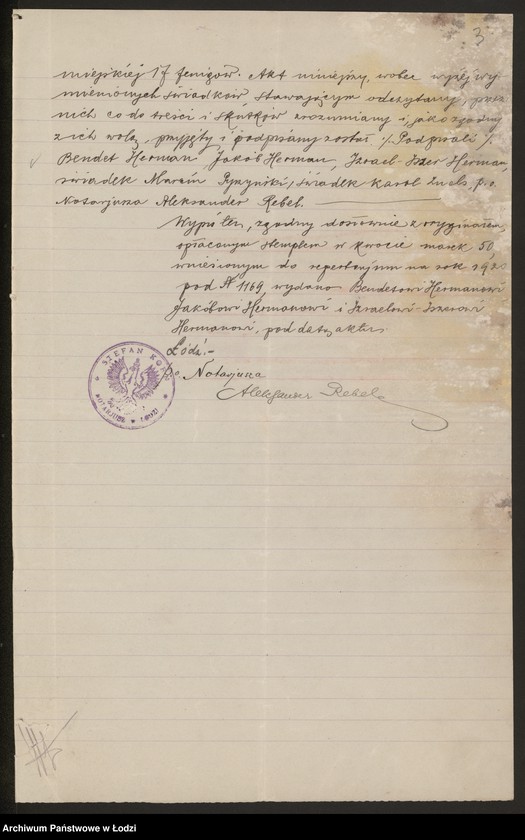 3
miejskiej 17 fenigów. Akt niniejszy, wobec wyżej wy
mienionych świadków, stawającym odczytany, przez
nich co do treści i skutków zrozumiany i, jako zgodny
z ich wolą, przyjęty i podpisany został /. Podpisali /.
Bendet Herman, Jakób Herman, Izrael-Iszer Herman,
świadek Marcin, świadek Karol, p.o.
Notarjusza Aleksander Rebel.
Wypis ten, zgodny dosłownie z oryginałem,
opłaconym stemplem w kwocie marek 50,
wniesionym do repertorjum na rok
pod № 1169 wydano Bendetowi Hermanowi
Jakóbowi Hermanowi i Izraelowi-Iszerowi
Hermanowi, pod datą aktu.
Łódź.-
p.o. Notarjusza
Aleksander Rebel
STEFAN KORN
NOTARJUSZ ŁODZI
Archiwum Państwowe w Łodzi